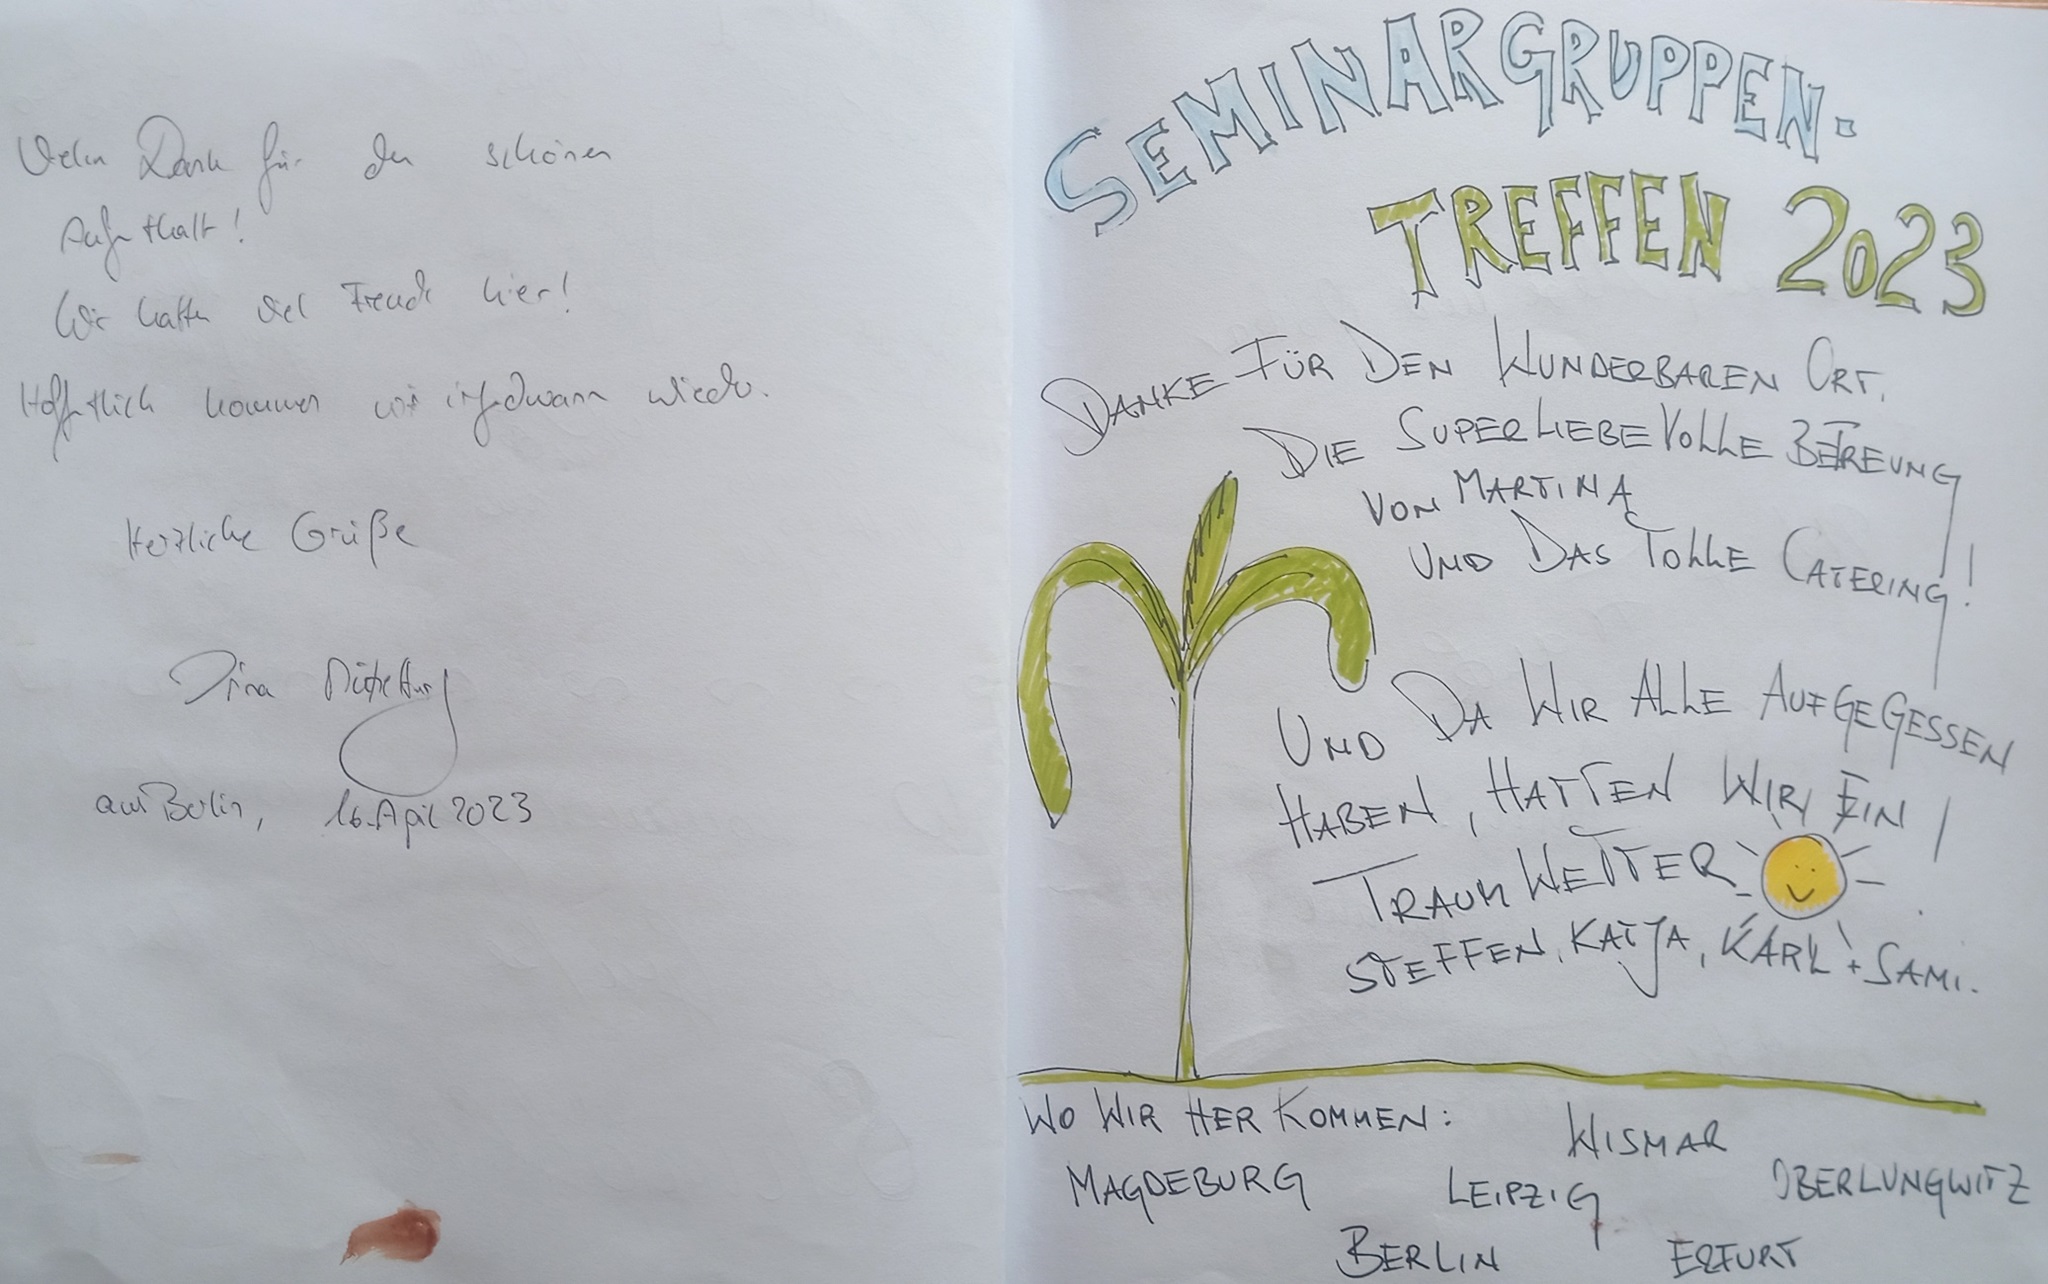 Vielen Dank für den schönen
Aufenthalt!
Wir hatten viel Freude hier!
Hoffentlich kommen wir irgendwann wieder.
Herzliche Grüße
aus Berlin, 16. April 2023
SEMINARGRUPPEN-
TREFFEN 2023
DANKE FÜR DEN WUNDERBAREN ORT,
DIE SUPERLIEBEVOLLE BETREUNG
VON MARTINA
UND DAS TOLLE CATERING!
UND DA WIR ALLE AUFGEGESSEN
HABEN, HATTEN WIR EIN
TRAUMWETTER
STEFFEN, KATJA, KARL + SAMI.
WO WIR HER KOMMEN:
WISMAR
MAGDEBURG LEIPZIG OBERLUNGWITZ
BERLIN ERFURT